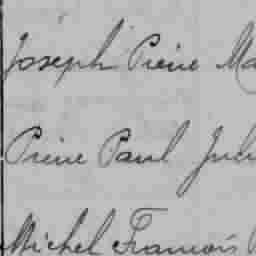 Joseph Pierre Ma
Pierre Paul Jul
Michel François